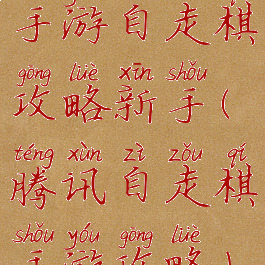 手游自走棋
gōng lüè xīn shǒu
攻略新手(
téng xùn zì zǒu qí
腾讯自走棋
shǒu yóu gōng lüè
手游攻略)